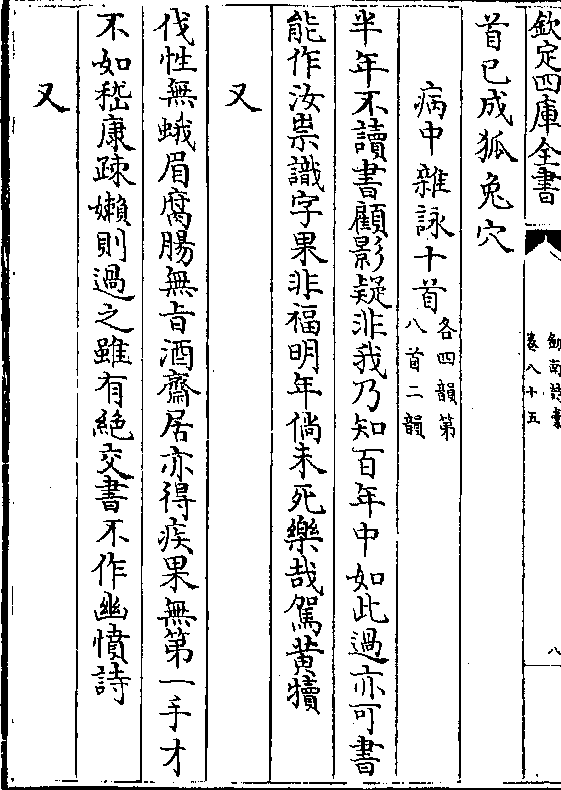 欽定四庫全書
劍南詩藁
卷八十五
八
首已成狐兔穴
病中雜詠十首
各四韻第
八首二韻
半年不讀書顧影疑非我乃知百年中如此過亦可書
能作汝祟識字果非福明年倘未死樂哉駕黄犢
又
伐性無蛾眉腐腸無㫖酒齋居亦得疾果無第一手才
不如嵇康疎嬾則過之雖有絶交書不作幽憤詩
又